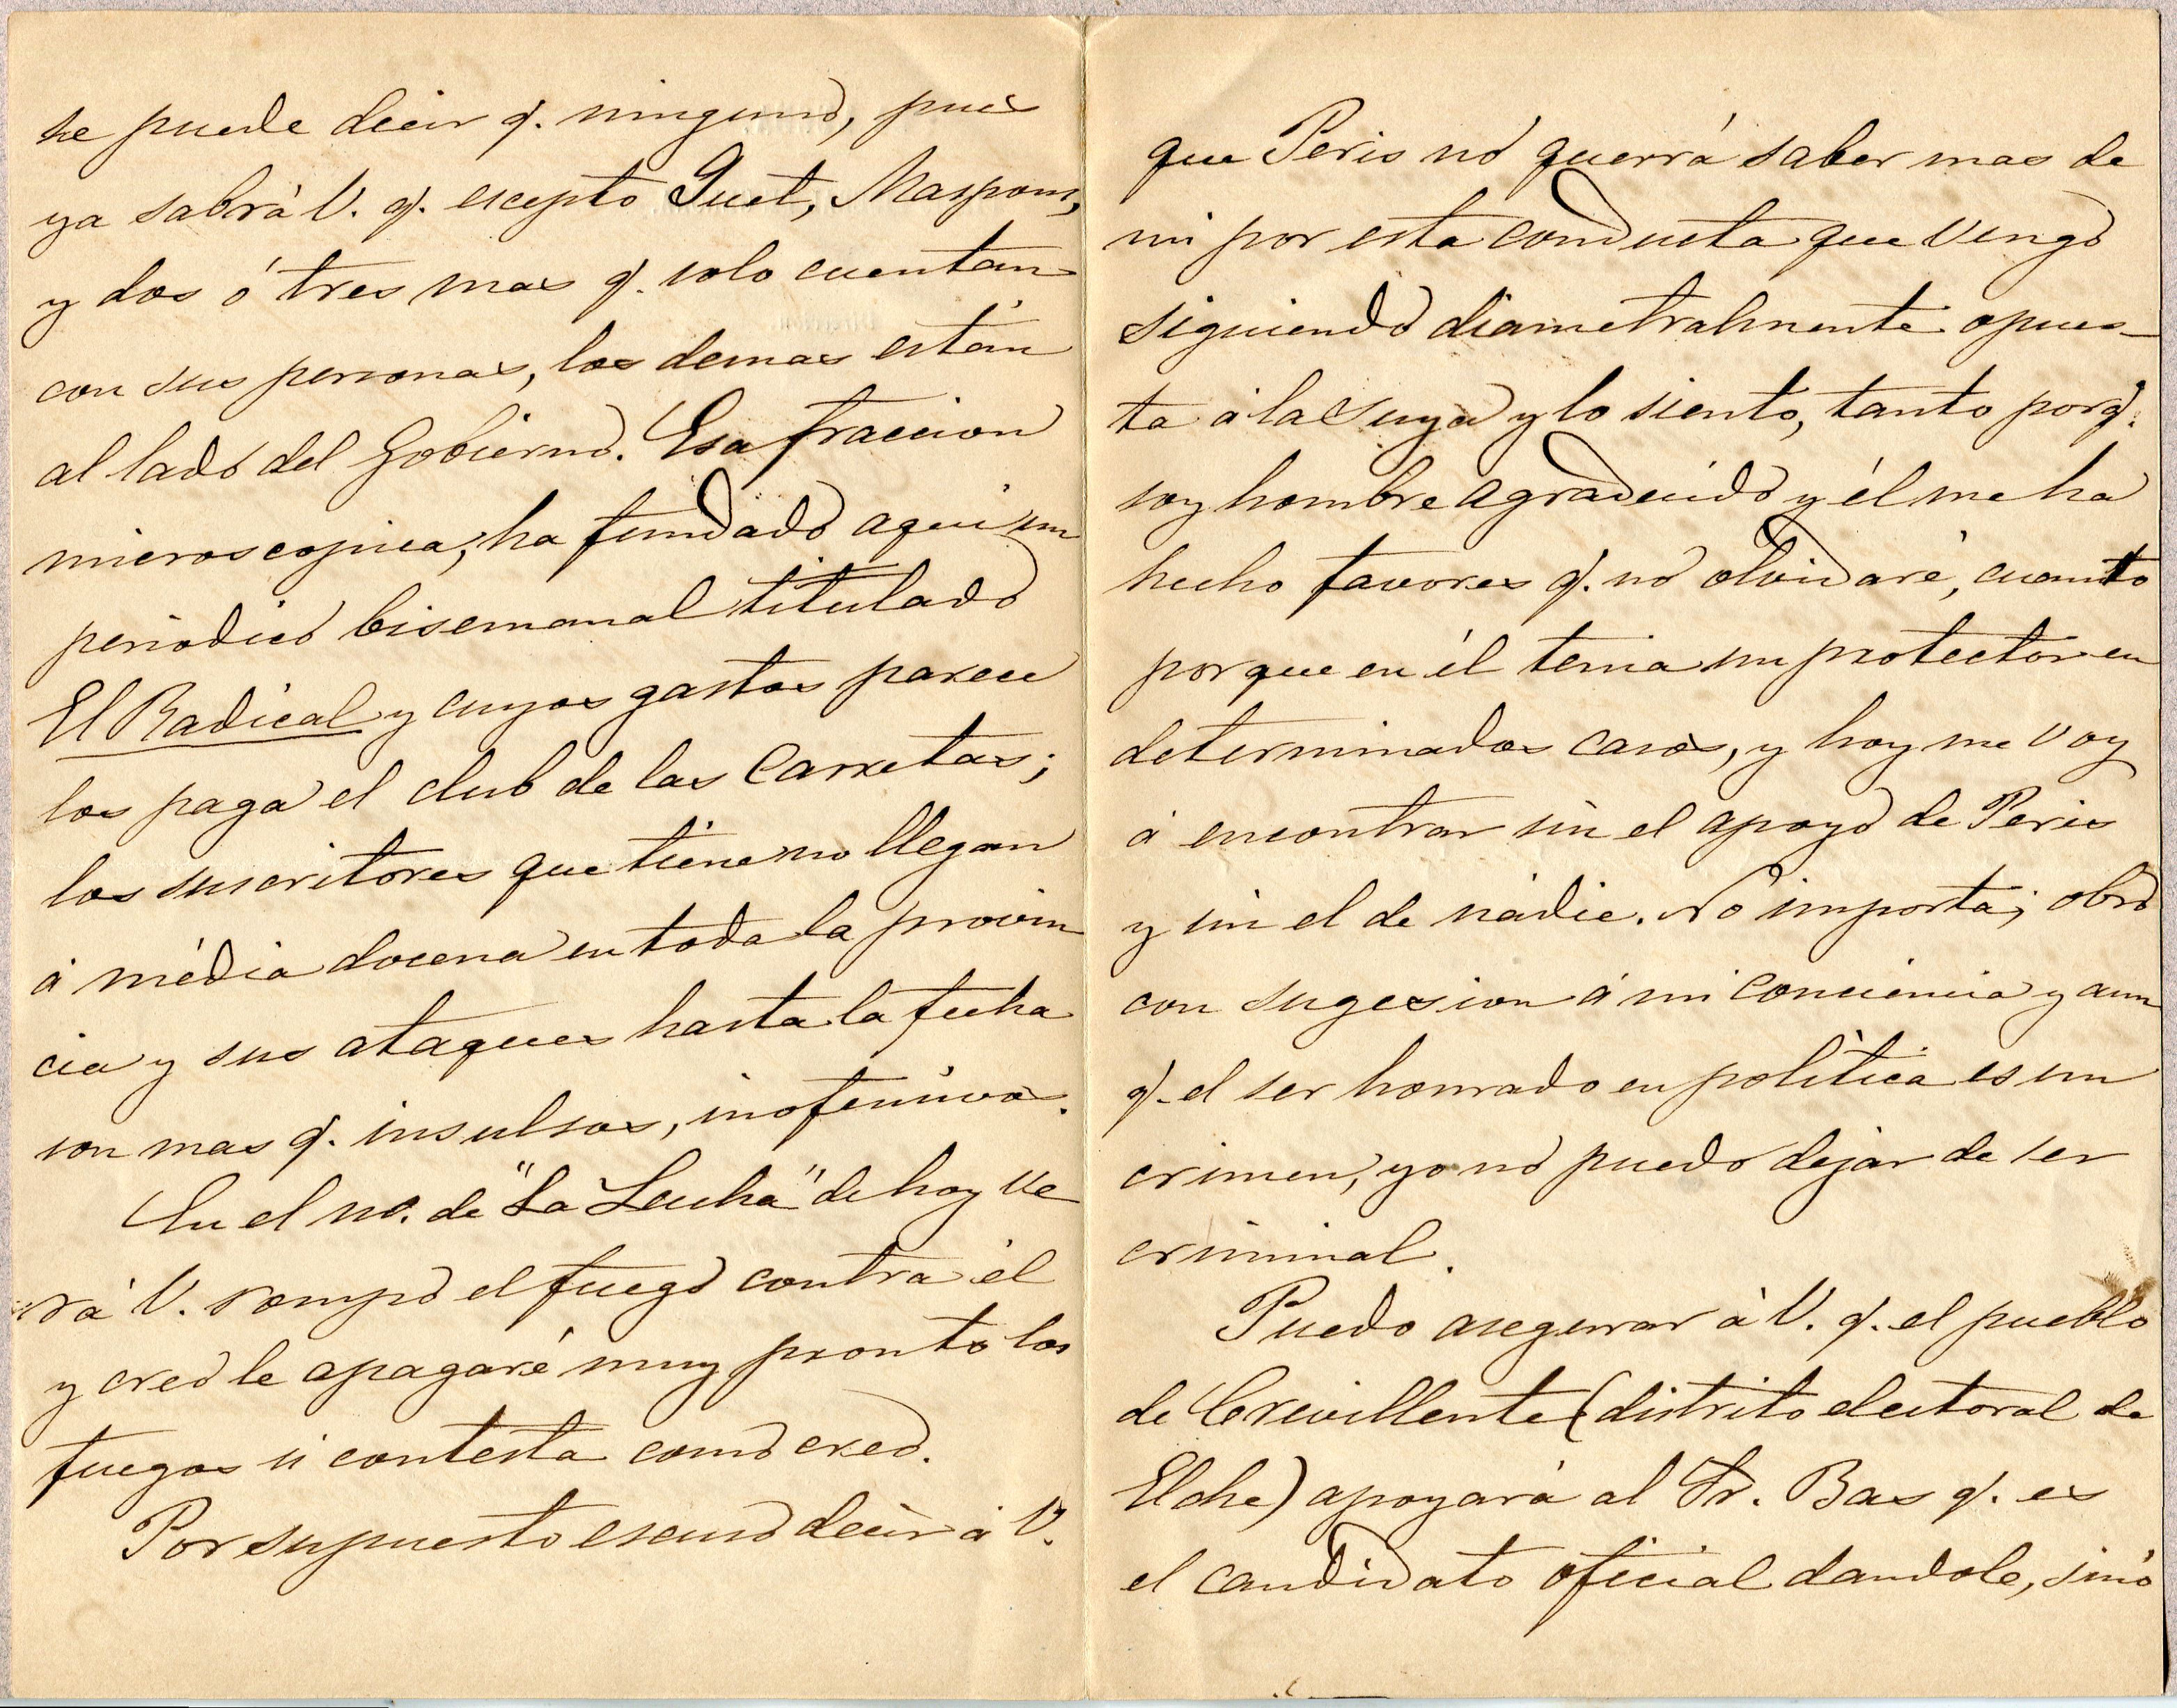 se puede decir q. ninguno, pues
ya sabrá V. q. escepto Guet, Maspons,
y dos ó tres mas q. solo cuentan
con sus personas, los demas están
al lado del Gobierno. Esa fraccion
microscopica, ha fundado aqui un
periodico bisemanal titulado
El Radical y cuyos gastos parece
los paga el club de las Carretas;
los suscritores que tiene no llegan
á média docena en toda la provin
cia y sus ataques hasta la fecha
son mas q. insulsos, inofensivos.
En el no. de "La Lucha" de hoy ve
rá V. rompo el fuego contra él
y creo le apagaré muy pronto los
fuegos si contesta como creo.
Por supuesto escuso decir á V.
que Peris nó querrá saber mas de
mi por esta conducta que vengo
siguiendo diametralmente opues-
ta á la suya y lo siento, tanto porq.
soy hombre agradecido y él me ha
hecho favores q. nó olvidaré, cuanto
porque en él tenia un protector en
determinados casos, y hoy me voy
á encontrar sin el apoyo de Peris
y sin el de nádie. No importa; obro
con sugesion á mi conciencia y aun
q. el ser honrado en política es un
crimen, yo nó puedo dejar de ser
criminal.
Puedo asegurar á V. q. el pueblo
de Crevillente (distrito electoral de
Elche) apoyará al Sr. Bas q. es
el candidato oficial dandole, sinó